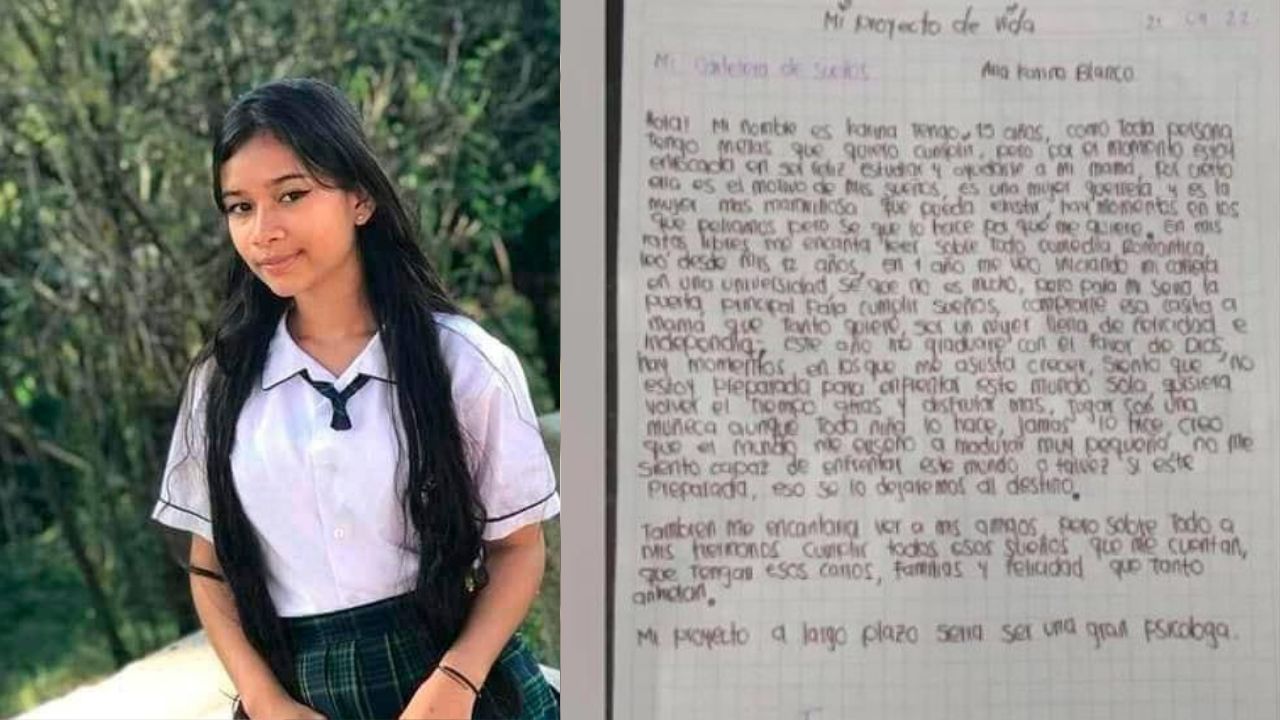 Mi proyecto de vida
21 09 22
Mi carretera de sueños
Ana Karina Blanco
Hola! Mi nombre es Karina Tengo, 15 años, como Toda persona
Tengo mettas que quiero cumplir, pero por el momento estoy
enfocada en ser feliz estudiar y ayudarle a mi mamá, Por cierto
ella es el motivo de mis sueños, es una mujer guerrera, y es la
mujer mas maravillosa que pueda existir, hay momentos en los
que peliamos pero se que lo hace por que me quiere. En mis
ratos libres me encanta leer sobre Todo comedia Romántica
leo desde mis 12 años, en 1 año me veo iniciando mi carrera
en una universidad se que no es mucho, pero para mi seria la
puerta principal para cumplir sueños, comprarle esa casita a
mama que Tanto quiere, ser un mujer llena de felicidad e
independia, Este año me graduare con el favor de Dios,
hay momentos en los que me asusta crecer, siento que no
estoy preparada para enfrentar este mundo sola, quisiera
volver el Tiempo atras y disfrutar mas, jugar con una
muñeca aunque Toda niña lo hace, jamas lo hice creo
que el mundo me enseño a madurar muy pequeña no me
siento capaz de enfrentar este mundo o talvez si este
preparada, eso se lo dejaremos al destino.
Tambien me encantaria ver a mis amigos, pero sobre Todo a
mis hermanos cumplir todos esos sueños que me cuentan,
que Tengan esos carros, familias y felicidad que tanto
anhelan.
Mi proyecto a largo plazo seria ser una gran psicologa.